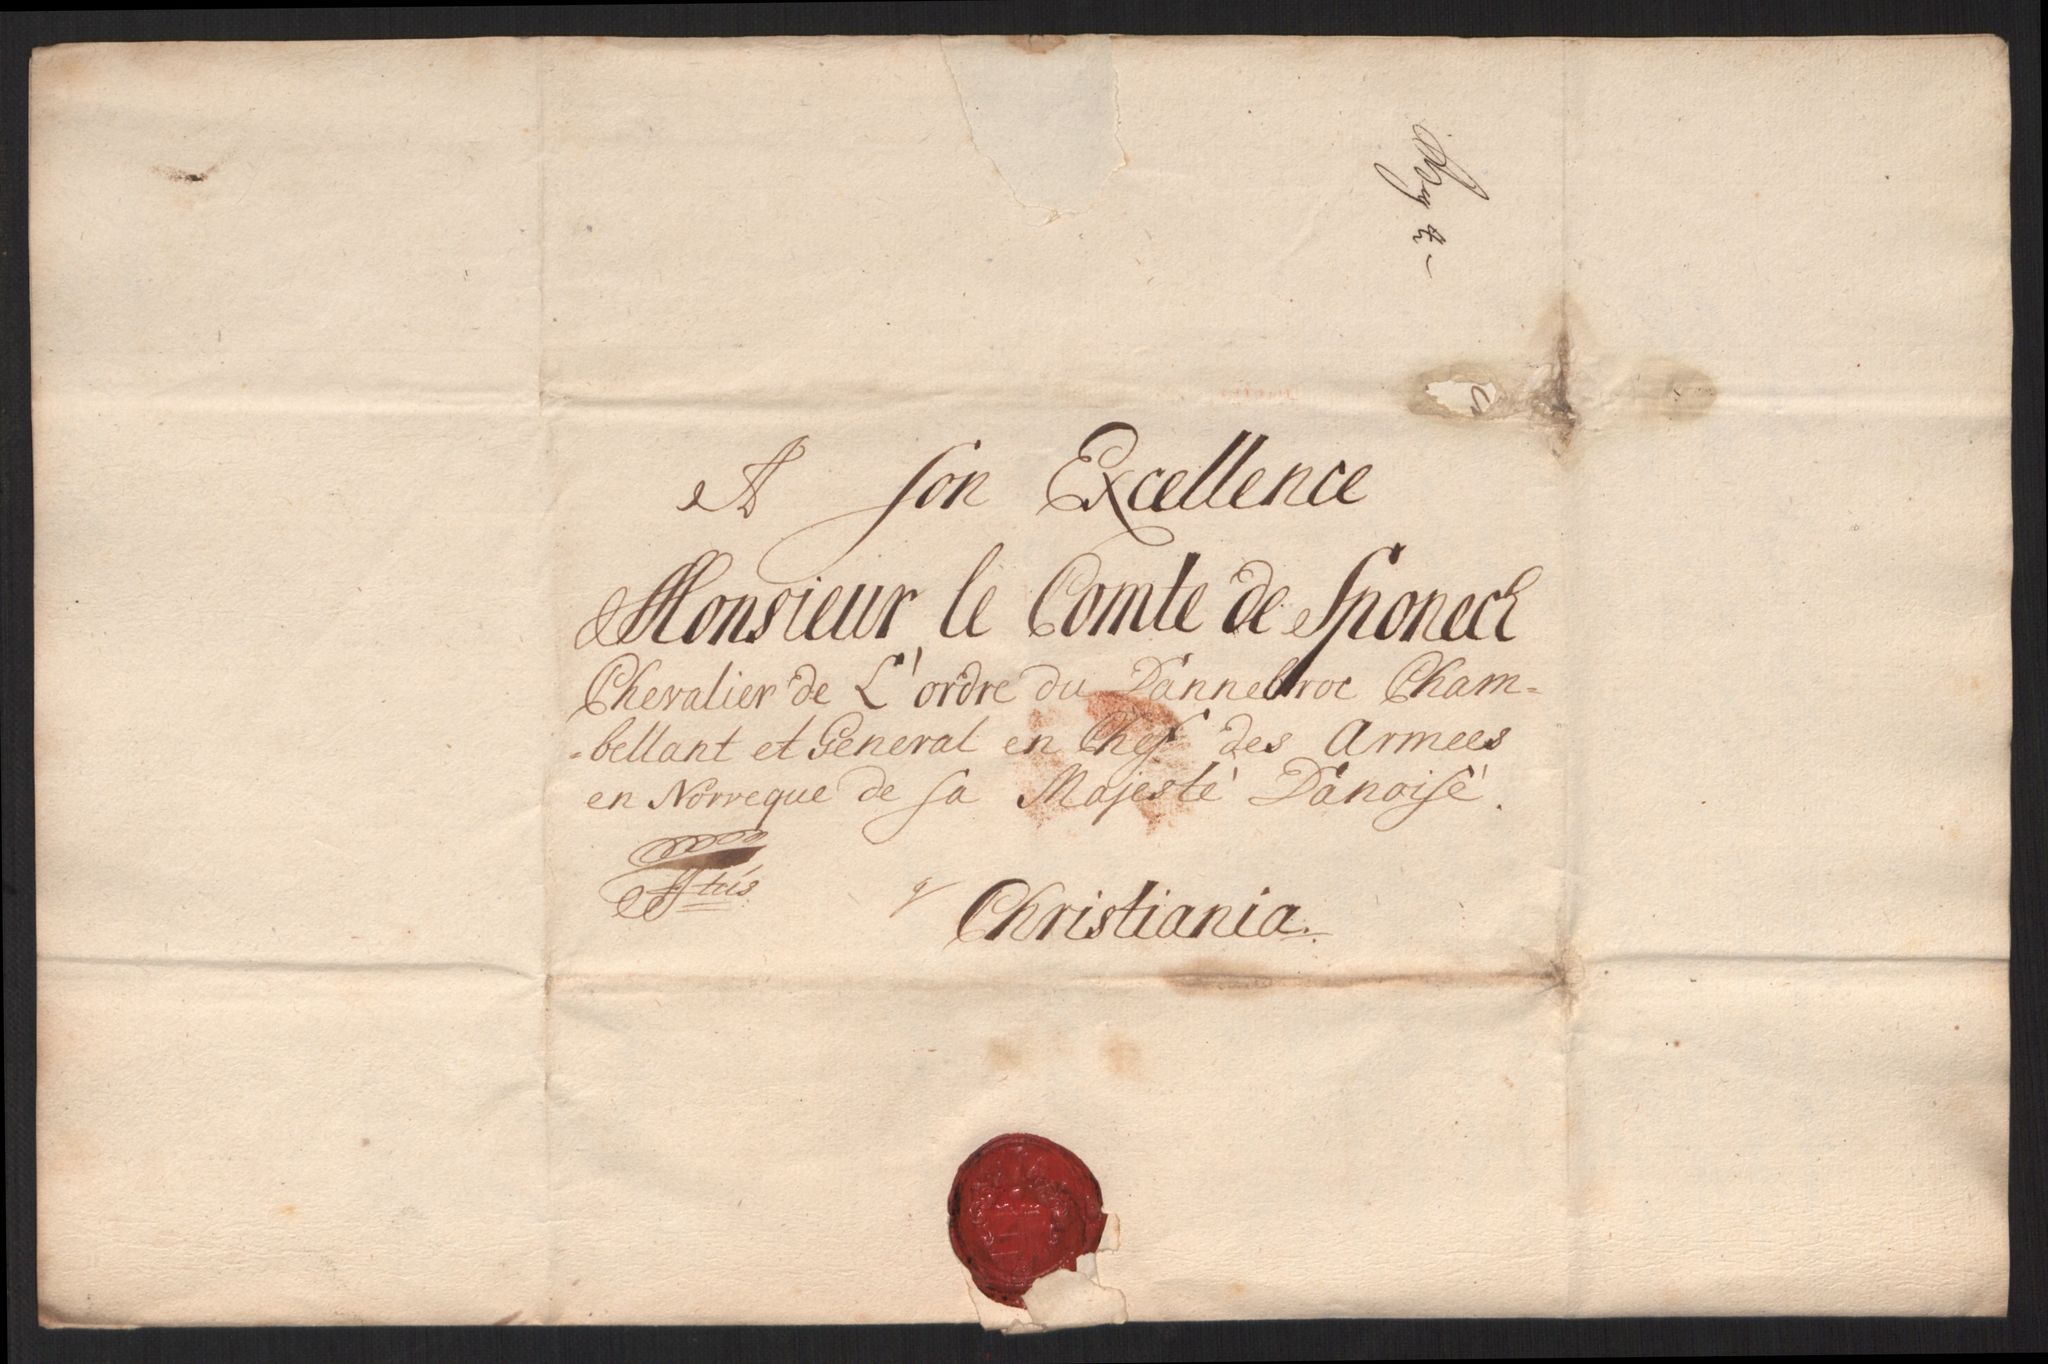 A Son Excellence
Monsieur le Comte de Sponeck
Chevalier de L'ordre du Dannebroc Cham=
=bellant et General en Chef des Armees
en Norveque de sa Majesté Danoise.
Christiania.